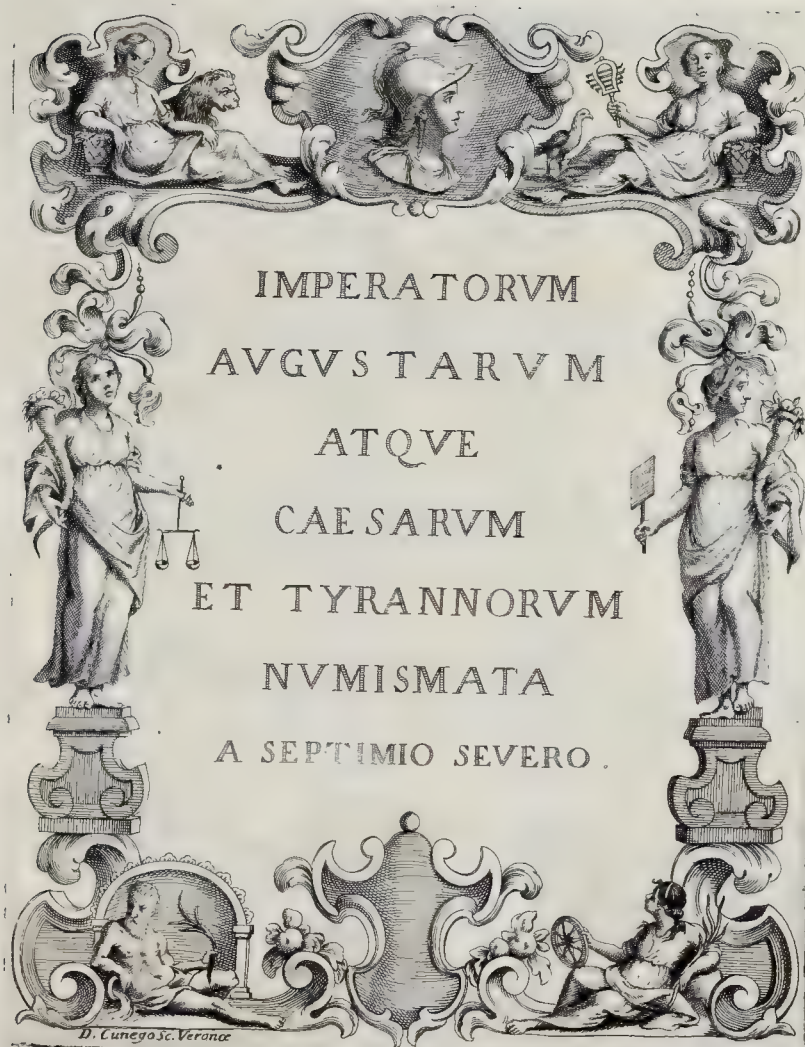 IMPERATORVM
AVGVSTARVM
ATQVE
CAESARVM
ET TYRANNORVM
NVMISMATA
A SEPTIMIO SEVERO.
D. Cunego Sc. Veronæ